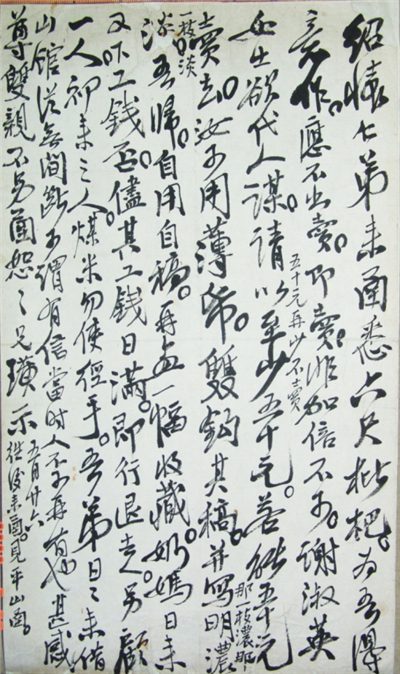 紹懷七弟來函悉六尺枇杷為吾得
意作應不出賣即賣非加倍不可謝淑英
五十元再少不賣
女士欲代人謀請以至少五十元若能五十元
賣去汝可用薄紙雙鈎其稿并寫明濃
那枝濃那
一枝淡
淡吾歸自用自稿再畫一幅收藏奶媽日來
又工錢否儘其工錢日滿即行退走另顧
一人初來之人煤米勿使經手吾弟日〻來借
山館從無間斷可謂有信當時人不可再有也甚感
尊雙親不另函恕〻兄璜示
五月廿六
後來函見平山函